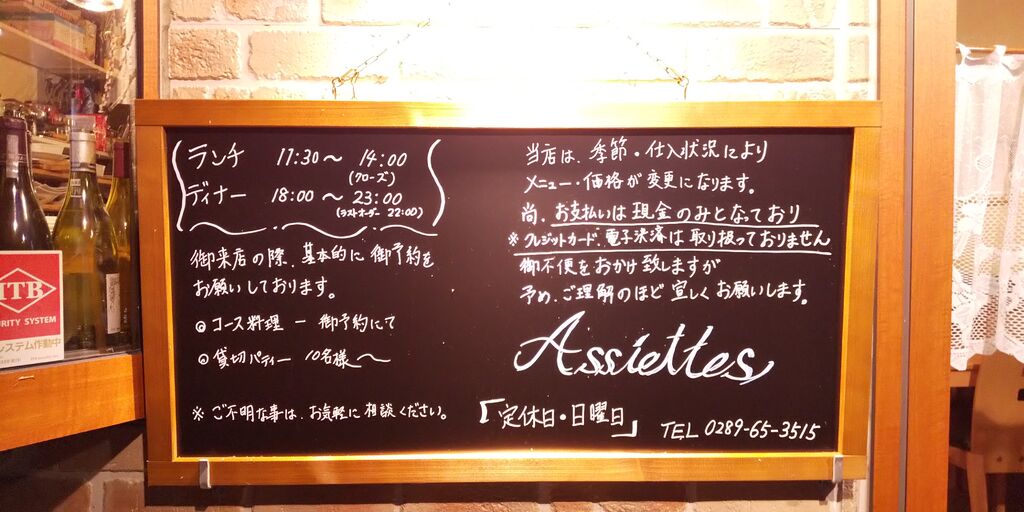 ランチ 11:30〜14:00
(クローズ)
ディナー 18:00〜23:00
(ラストオーダー 22:00)
御来店の際、基本的に御予約を
お願いしております。
◎ コース料理 ー 御予約にて
◎ 貸切パティー 10名様〜
※ ご不明な事は、お気軽に相談ください。
当店は、季節・仕入状況により
メニュー・価格が変更になります。
尚、お支払いは現金のみとなっており
※ クレジットカード、電子決済は取り扱っておりません
御不便をおかけ致しますが
予め、ご理解のほど宜しくお願いします。
Assiettes
「定休日・日曜日」
TEL 0289-65-3515
ITB
URITY SYSTEM
システム作動中